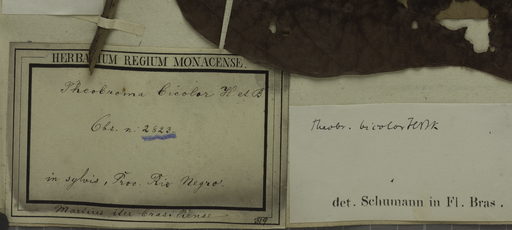 HERBARIUM REGIUM MONACENSE.
Theobroma bicolor H et B
Obs. n. 2523
in sylvis, Prov. Rio Negro
Martius iter brasiliense
Theobr. bicolor
det. Schumann in Fl. Bras.